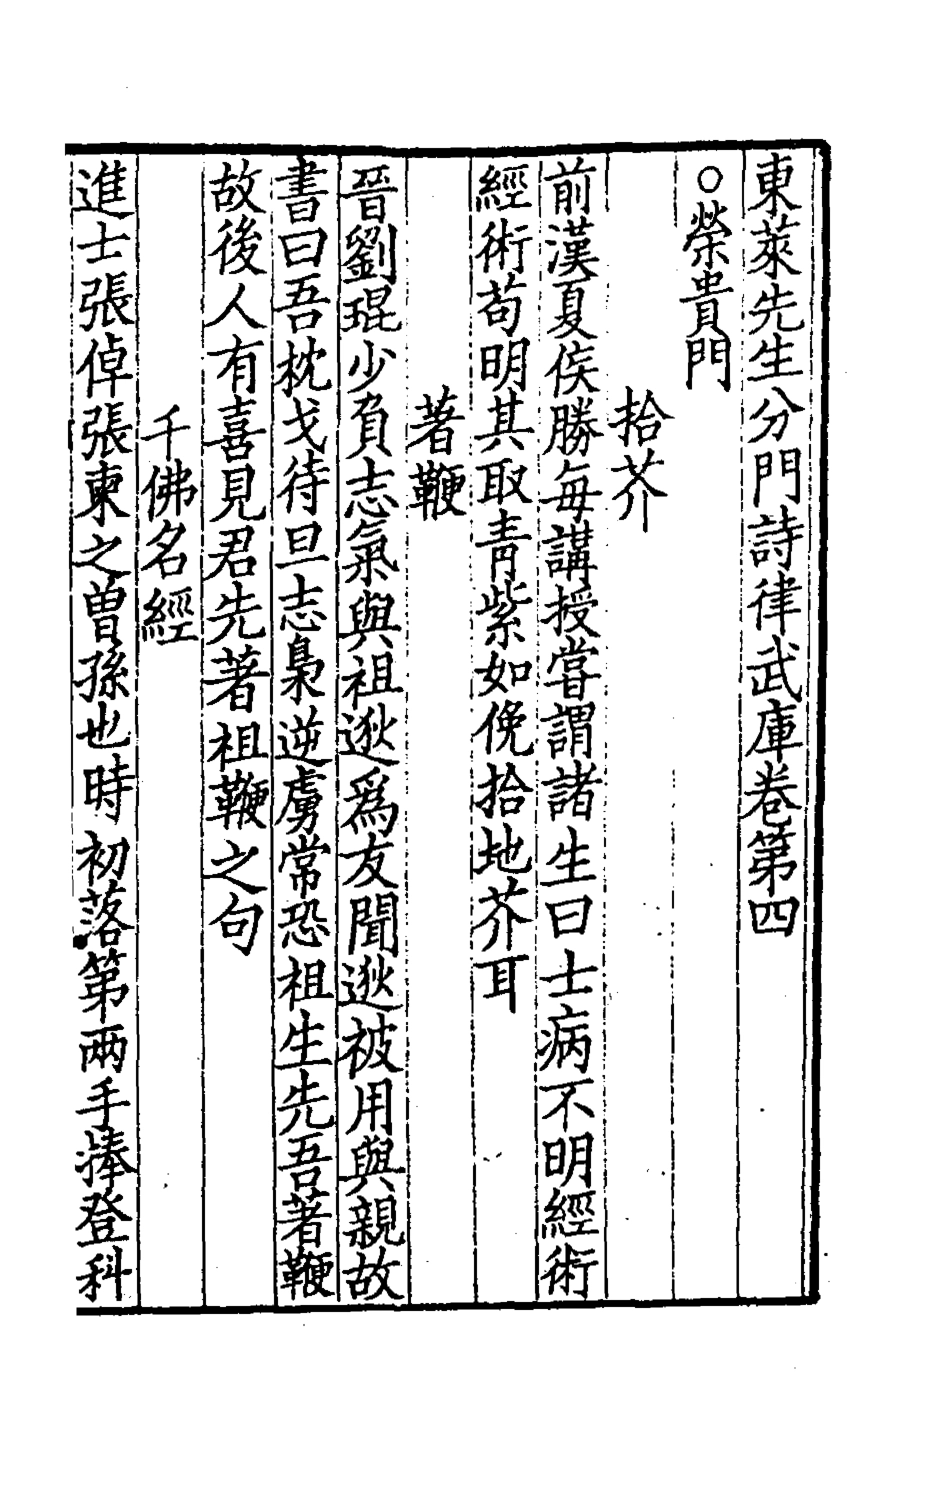 東萊先生分門詩律武庫卷第四
○榮貴門
拾芥
前漢夏侯勝每講授嘗謂諸生曰士病不明經術
經術苟明其取青紫如俛拾地芥耳
著鞭
晉劉琨少負志氣與祖逖爲友聞逖被用與親故
書曰吾枕戈待旦志梟逆虜常恐祖生先吾著鞭
故後人有喜見君先著祖鞭之句
千佛名經
進士張倬張柬之曽孫也時初落第兩手捧登科